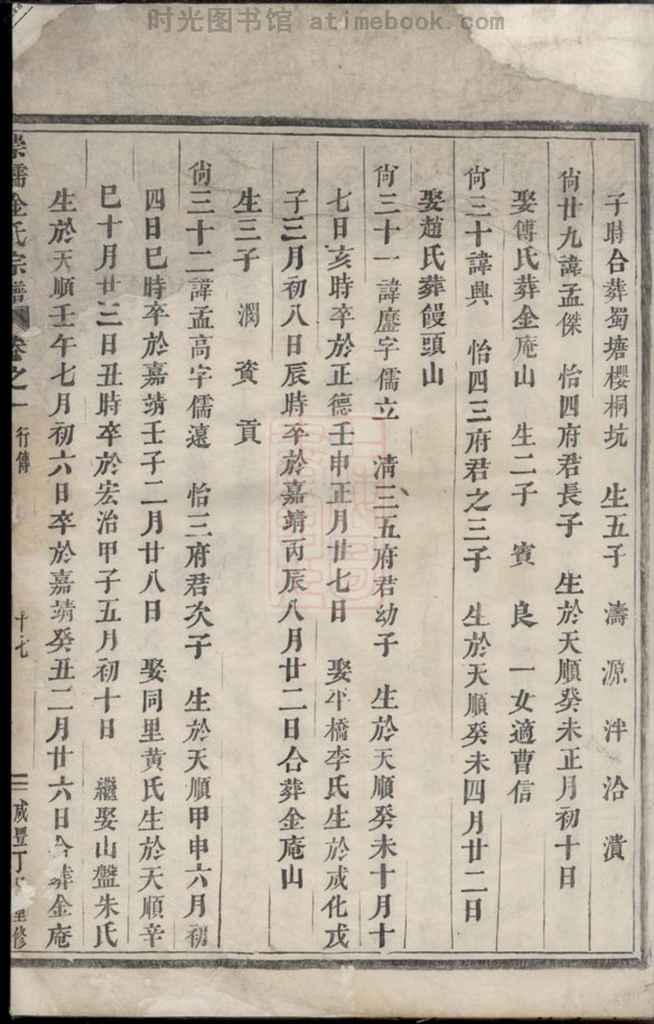 时光图书馆 - atimebook.com
子時合葬蜀塘櫻桐坑 生五子 濤 源 泮 洽 潰
尙廿九諱孟傑 怡四府君長子 生於天順癸未正月初十日
娶傅氏葬金庵山 生二子 賓 良 一女適曹信
尙三十諱興 怡四三府君之三子 生於天順癸未四月廿二日
娶趙氏葬饅頭山
尙三十一諱鏖字儒立 清三五府君幼子 生於天順癸未十月十
七日亥時卒於正德壬申正月廿七日 娶平橋李氏生於成化戊
子三月初八日辰時卒於嘉靖丙辰八月廿二日合葬金庵山
生三子 潤 資 貢
尙三十二諱孟高字儒遠 怡三府君次子 生於天順甲申六月初
四日巳時卒於嘉靖壬子二月廿八日 娶同里黃氏生於天順辛
巳十月廿三日丑時卒於宏治甲子五月初十日 繼娶山盤朱氏
生於天順壬午七月初六日卒於嘉靖癸丑二月廿六日合葬金庵
崇儒金氏宗譜 卷之一 行傳 十七 咸豐丁 重修